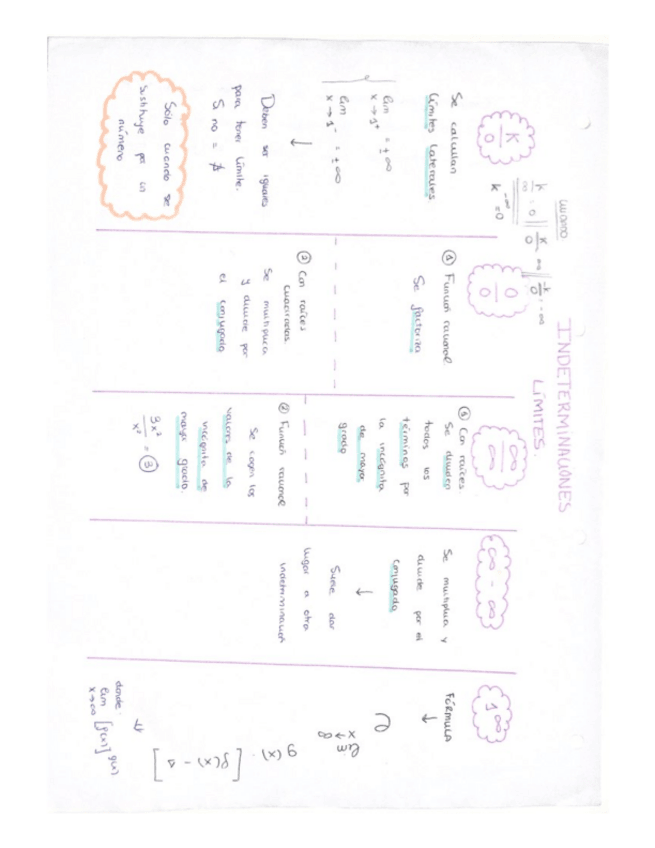 INDETERMINACIONES
LÍMITES.
cuando
k/∞ = 0
k/0 = ∞
-k/0 = -∞
k^-∞ = 0
K/0
Se calculan
límites laterales
lim x→1⁺ = ±∞
lim x→1⁻ = ±∞
↓
Deben ser iguales
para tener límite.
S no = ∄
Sólo cuando se
sustituye por un
número
0/0
① Función racional
Se factoriza
② Con raíces
cuadradas.
Se multiplica
y divide por
el conjugado
∞/∞
① Con raíces
Se dividen
todos los
términos por
la incógnita
de mayor
grado
② Función racional
Se cogen los
valores de la
incógnita de
mayor grado.
3x²/x² = ③
∞ - ∞
Se multiplica y
divide por el
conjugado
↓
Suele dar
lugar a otra
indeterminación
1^∞
FÓRMULA
↓
e
lim x→∞ g(x) · [f(x) - 1]
↓
donde:
lim x→∞ [f(x)]^g(x)